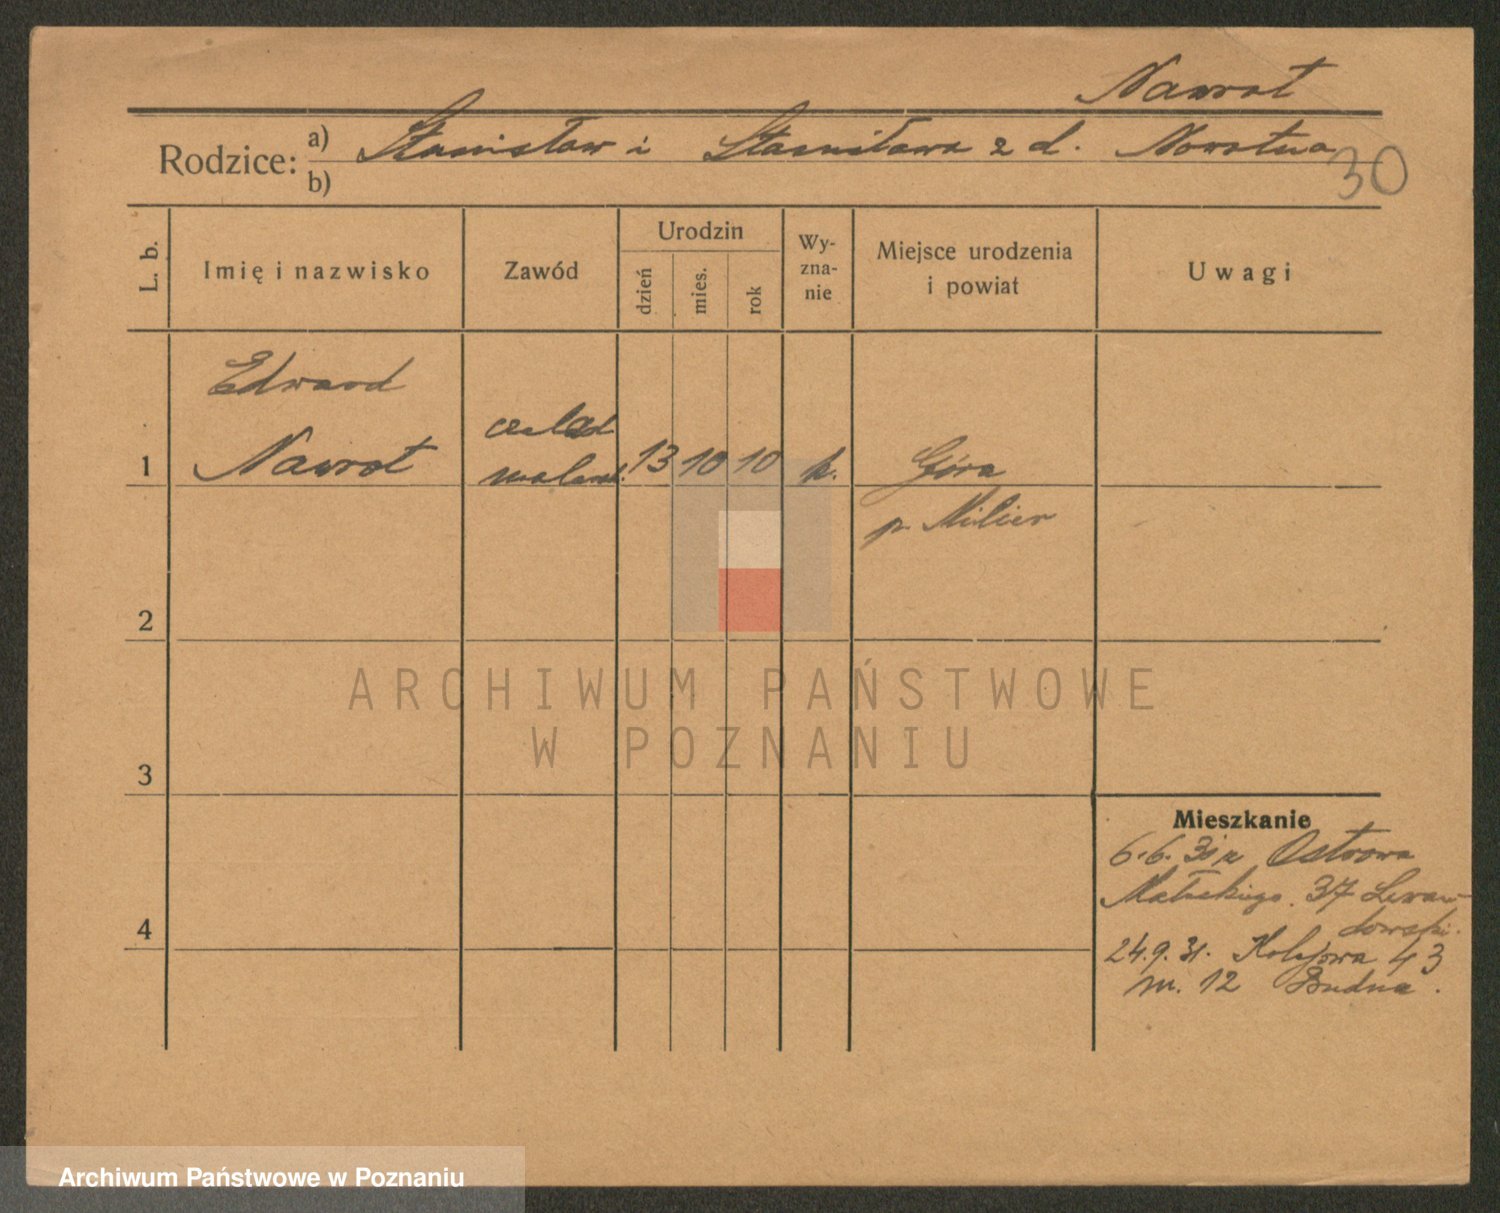 Nawrot
Rodzice: a) Stanisław i Stanisława z d. Nowotna
b)
30
L. b.
Imię i nazwisko
Zawód
Urodzin
dzień
mies.
rok
Wy-
zna-
nie
Miejsce urodzenia
i powiat
Uwagi
Edward
czelad
1 Nawrot malarsk. 13 10 10 k. Góra
p. Milicz
2
3
4
Mieszkanie
6.6. z Ostrowa
Małeckiego 37 Lewan-
dowski.
24.9.31. Kolejowa 43
m. 12 Budna.
ARCHIWUM PAŃSTWOWE
W POZNANIU
Archiwum Państwowe w Poznaniu